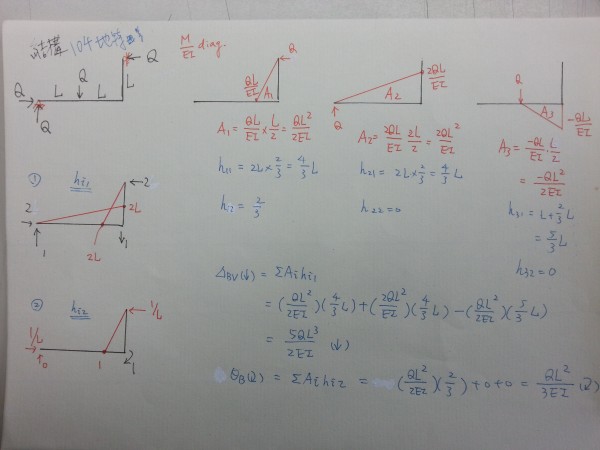 結構104地特三等
M/EI diag.
Q
Q
L
L
L
Q
Q
QL/EI
A1
Q
2QL/EI
A2
Q
Q
A3
-QL/EI
A1 = QL/EI × L/2 = QL²/2EI
A2 = 2QL/EI 2L/2 = 2QL²/EI
A3 = -QL/EI · L/2
= -QL²/2EI
h11 = 2L × 2/3 = 4/3 L
h21 = 2L × 2/3 = 4/3 L
h31 = L + 2/3 L
= 5/3 L
h12 = 2/3
h22 = 0
h32 = 0
① hi1
2
2
2L
2L
1
1
② hi2
1/L
1/L
0
1
1
ΔBV(↓) = ΣAihi1
= (QL²/2EI)(4/3 L) + (2QL²/EI)(4/3 L) - (QL²/2EI)(5/3 L)
= 5QL³/2EI (↓)
θB(2) = ΣAihi2 = (QL²/2EI)(2/3) + 0 + 0 = QL²/3EI (2)